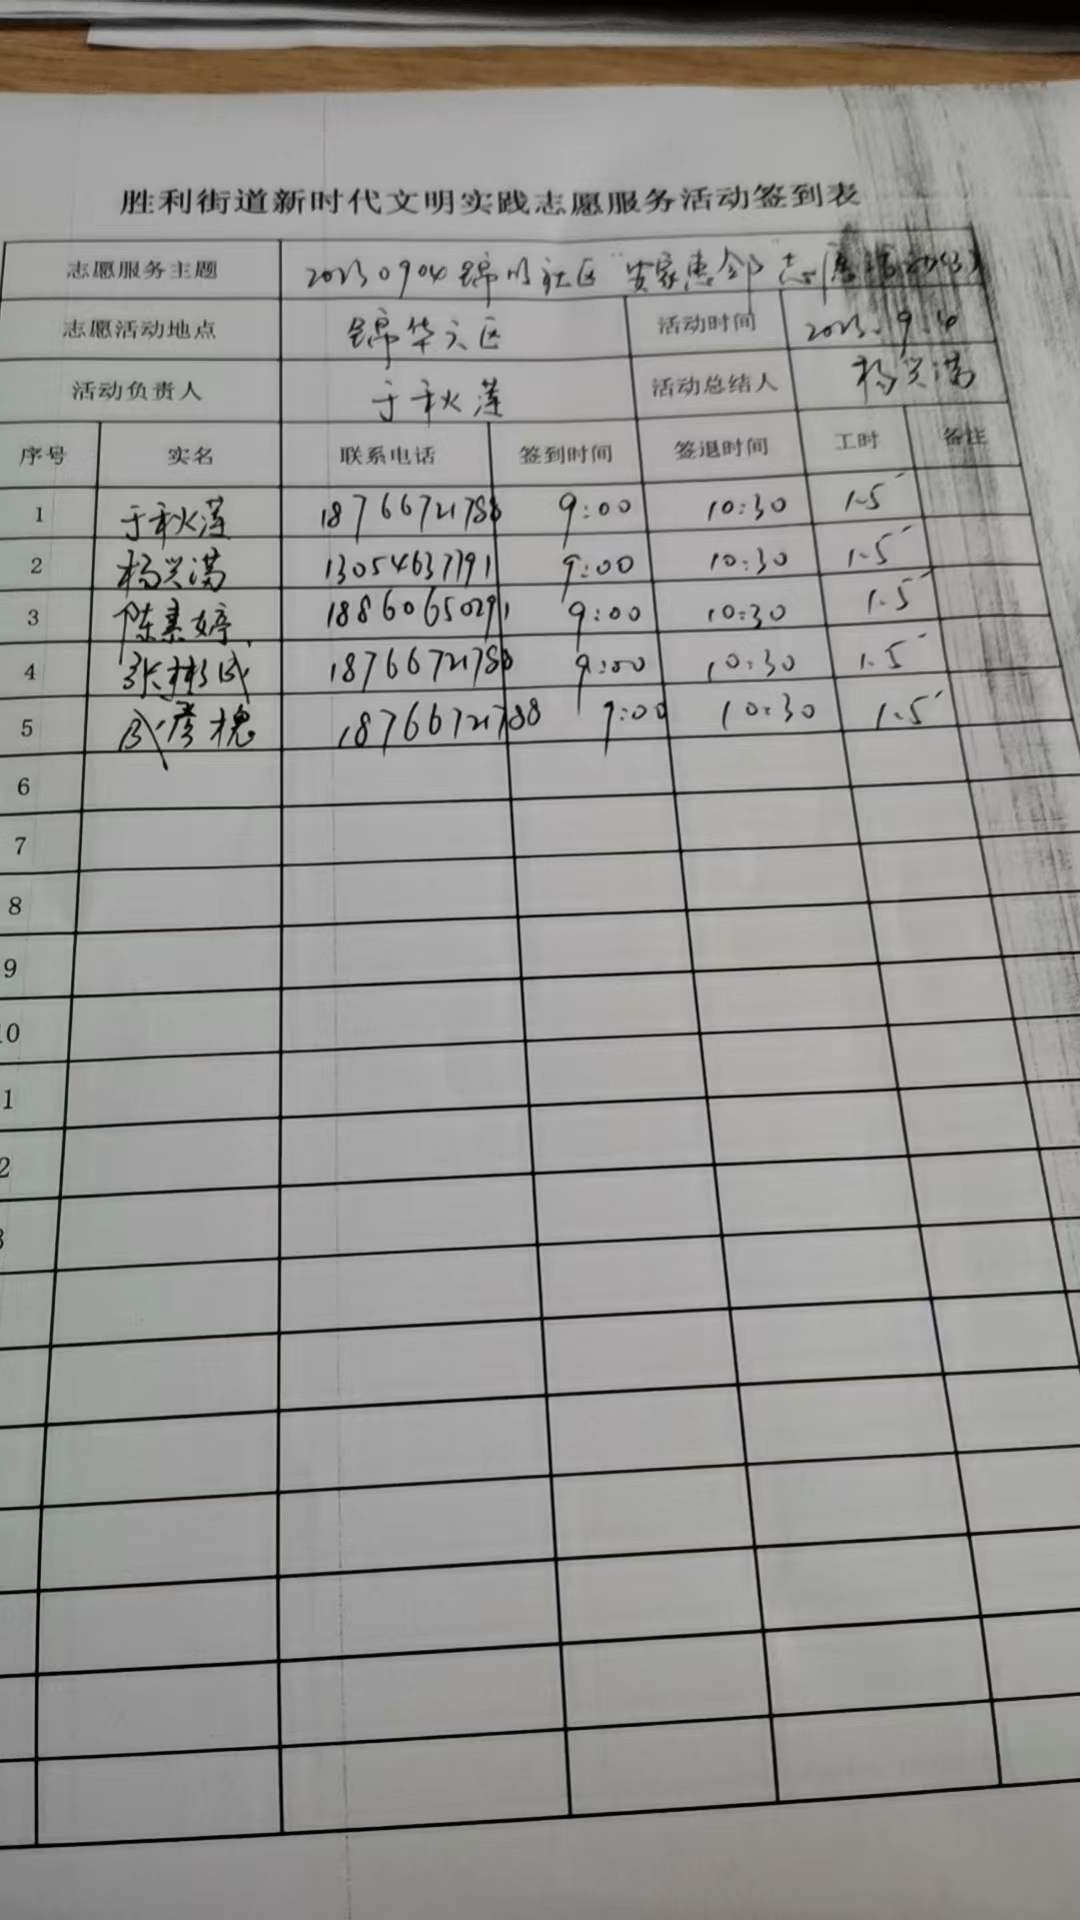 胜利街道新时代文明实践志愿服务活动签到表
志愿服务主题 20230904锦川社区"安家惠邻"志愿活动(3)
志愿活动地点 锦华六区 活动时间 2023.9.4
活动负责人 于秋莲 活动总结人 杨兴满
序号 实名 联系电话 签到时间 签退时间 工时 备注
1 于秋莲 18766721788 9:00 10:30 1.5
2 杨兴满 13054637791 9:00 10:30 1.5
3 陈素婷 18860650291 9:00 10:30 1.5
4 张彬成 18766721788 9:00 10:30 1.5
5 18766721788 9:00 10:30 1.5
6
7
8
9
10
1
2
3